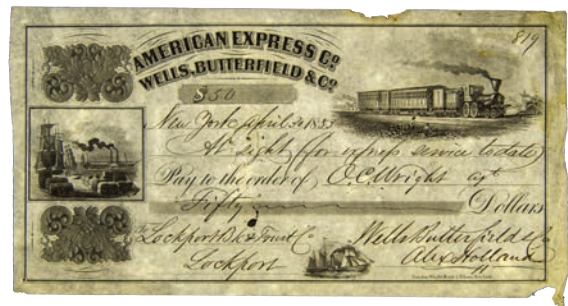 819
AMERICAN EXPRESS Co
WELLS, BUTTERFIELD & Co
$50
New York April 30 1855
At Sight (for express service to date)
Pay to the order of O. C. Wright agt
Fifty Dollars
To Lockport Bk & Trust Co Wells Butterfield & Co
Lockport Alex Holland